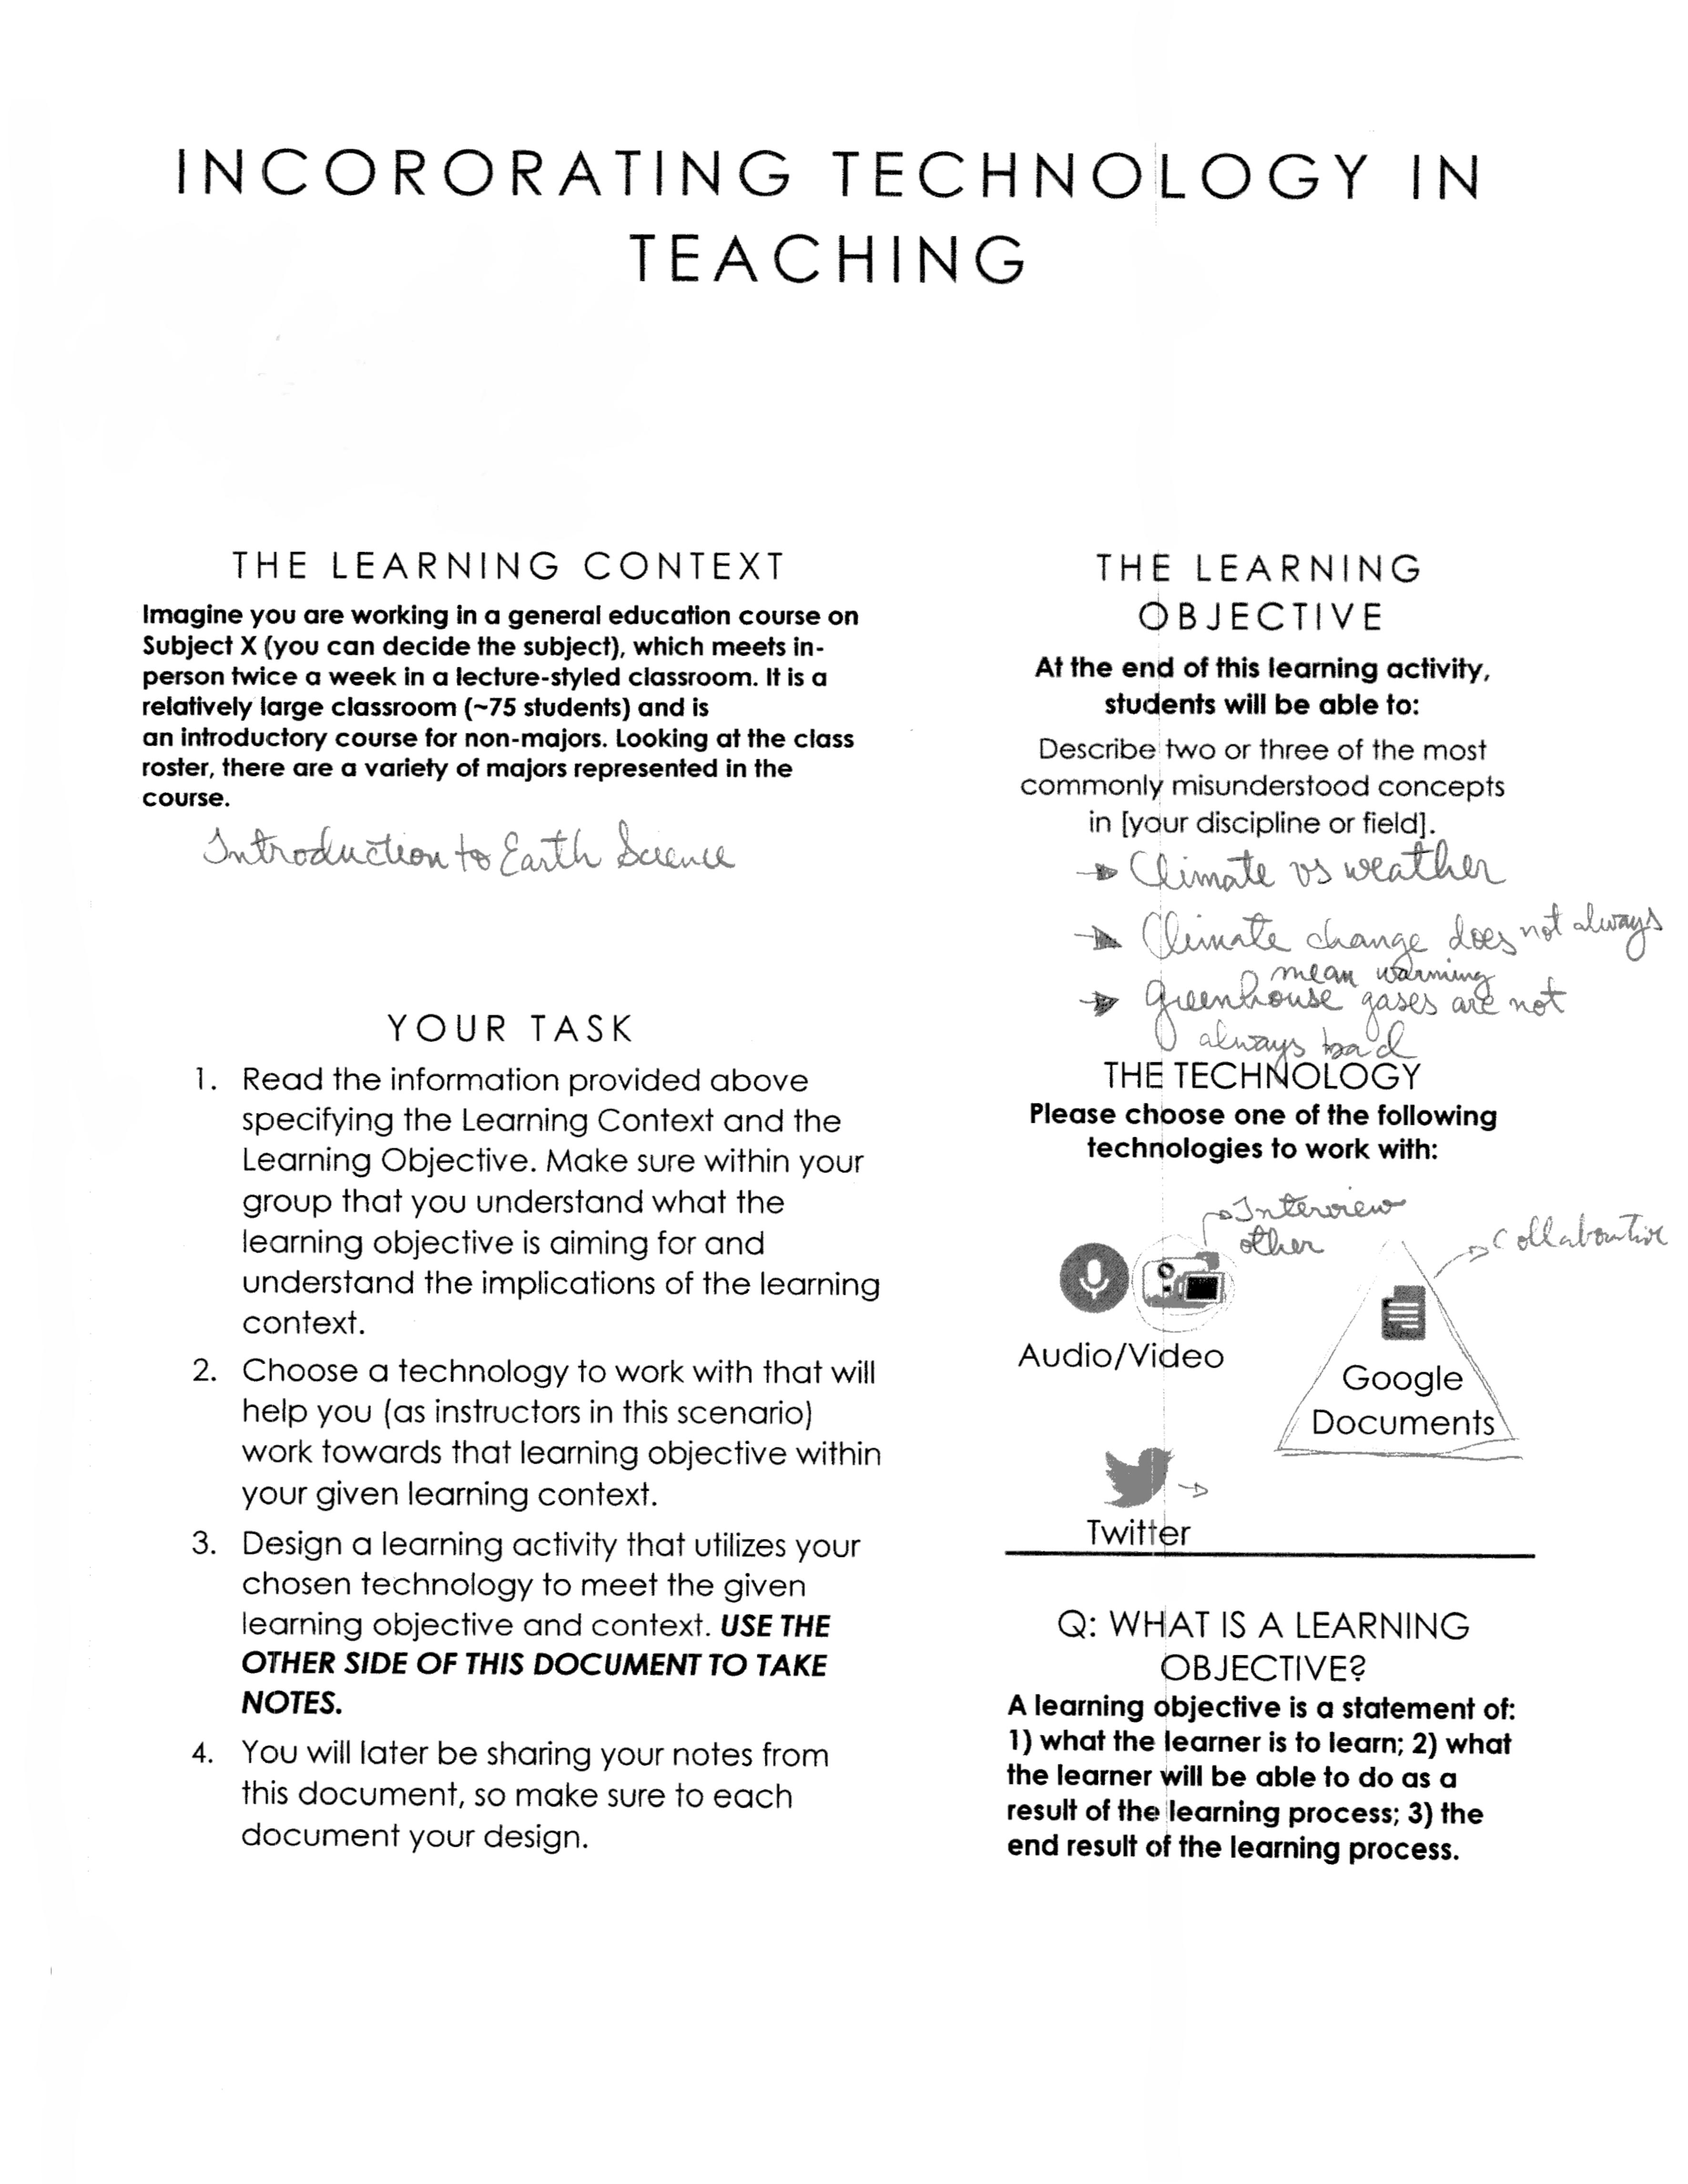 INCORORATING TECHNOLOGY IN
TEACHING
THE LEARNING CONTEXT
Imagine you are working in a general education course on
Subject X (you can decide the subject), which meets in-
person twice a week in a lecture-styled classroom. It is a
relatively large classroom (~75 students) and is
an introductory course for non-majors. Looking at the class
roster, there are a variety of majors represented in the
course.
Introduction to Earth Science
YOUR TASK
1. Read the information provided above
specifying the Learning Context and the
Learning Objective. Make sure within your
group that you understand what the
learning objective is aiming for and
understand the implications of the learning
context.
2. Choose a technology to work with that will
help you (as instructors in this scenario)
work towards that learning objective within
your given learning context.
3. Design a learning activity that utilizes your
chosen technology to meet the given
learning objective and context. USE THE
OTHER SIDE OF THIS DOCUMENT TO TAKE
NOTES.
4. You will later be sharing your notes from
this document, so make sure to each
document your design.
THE LEARNING
OBJECTIVE
At the end of this learning activity,
students will be able to:
Describe two or three of the most
commonly misunderstood concepts
in [your discipline or field].
→ Climate vs weather
→ Climate change does not always
mean warming
→ greenhouse gases are not
always bad
THE TECHNOLOGY
Please choose one of the following
technologies to work with:
→ Interview
other
→ Collaborative
Audio/Video
Google
Documents
→
Twitter
Q: WHAT IS A LEARNING
OBJECTIVE?
A learning objective is a statement of:
1) what the learner is to learn; 2) what
the learner will be able to do as a
result of the learning process; 3) the
end result of the learning process.